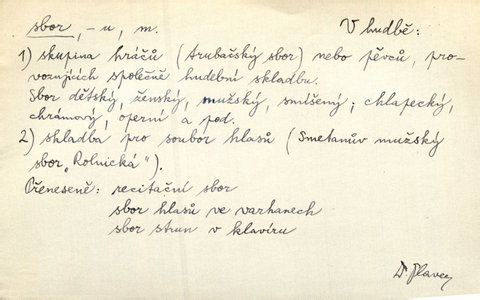 sbor, -u, m. V hudbě:
1) skupina hráčů (trubačský sbor) nebo pěvců, pro-
vozujících společně hudební skladbu.
Sbor dětský, ženský, mužský, smíšený; chlapecký,
chrámový, operní a pod.
2) skladba pro soubor hlasů (Smetanův mužský
sbor „Rolnická“).
Přeneseně: recitační sbor
sbor hlasů ve varhanech
sbor strun v klavíru